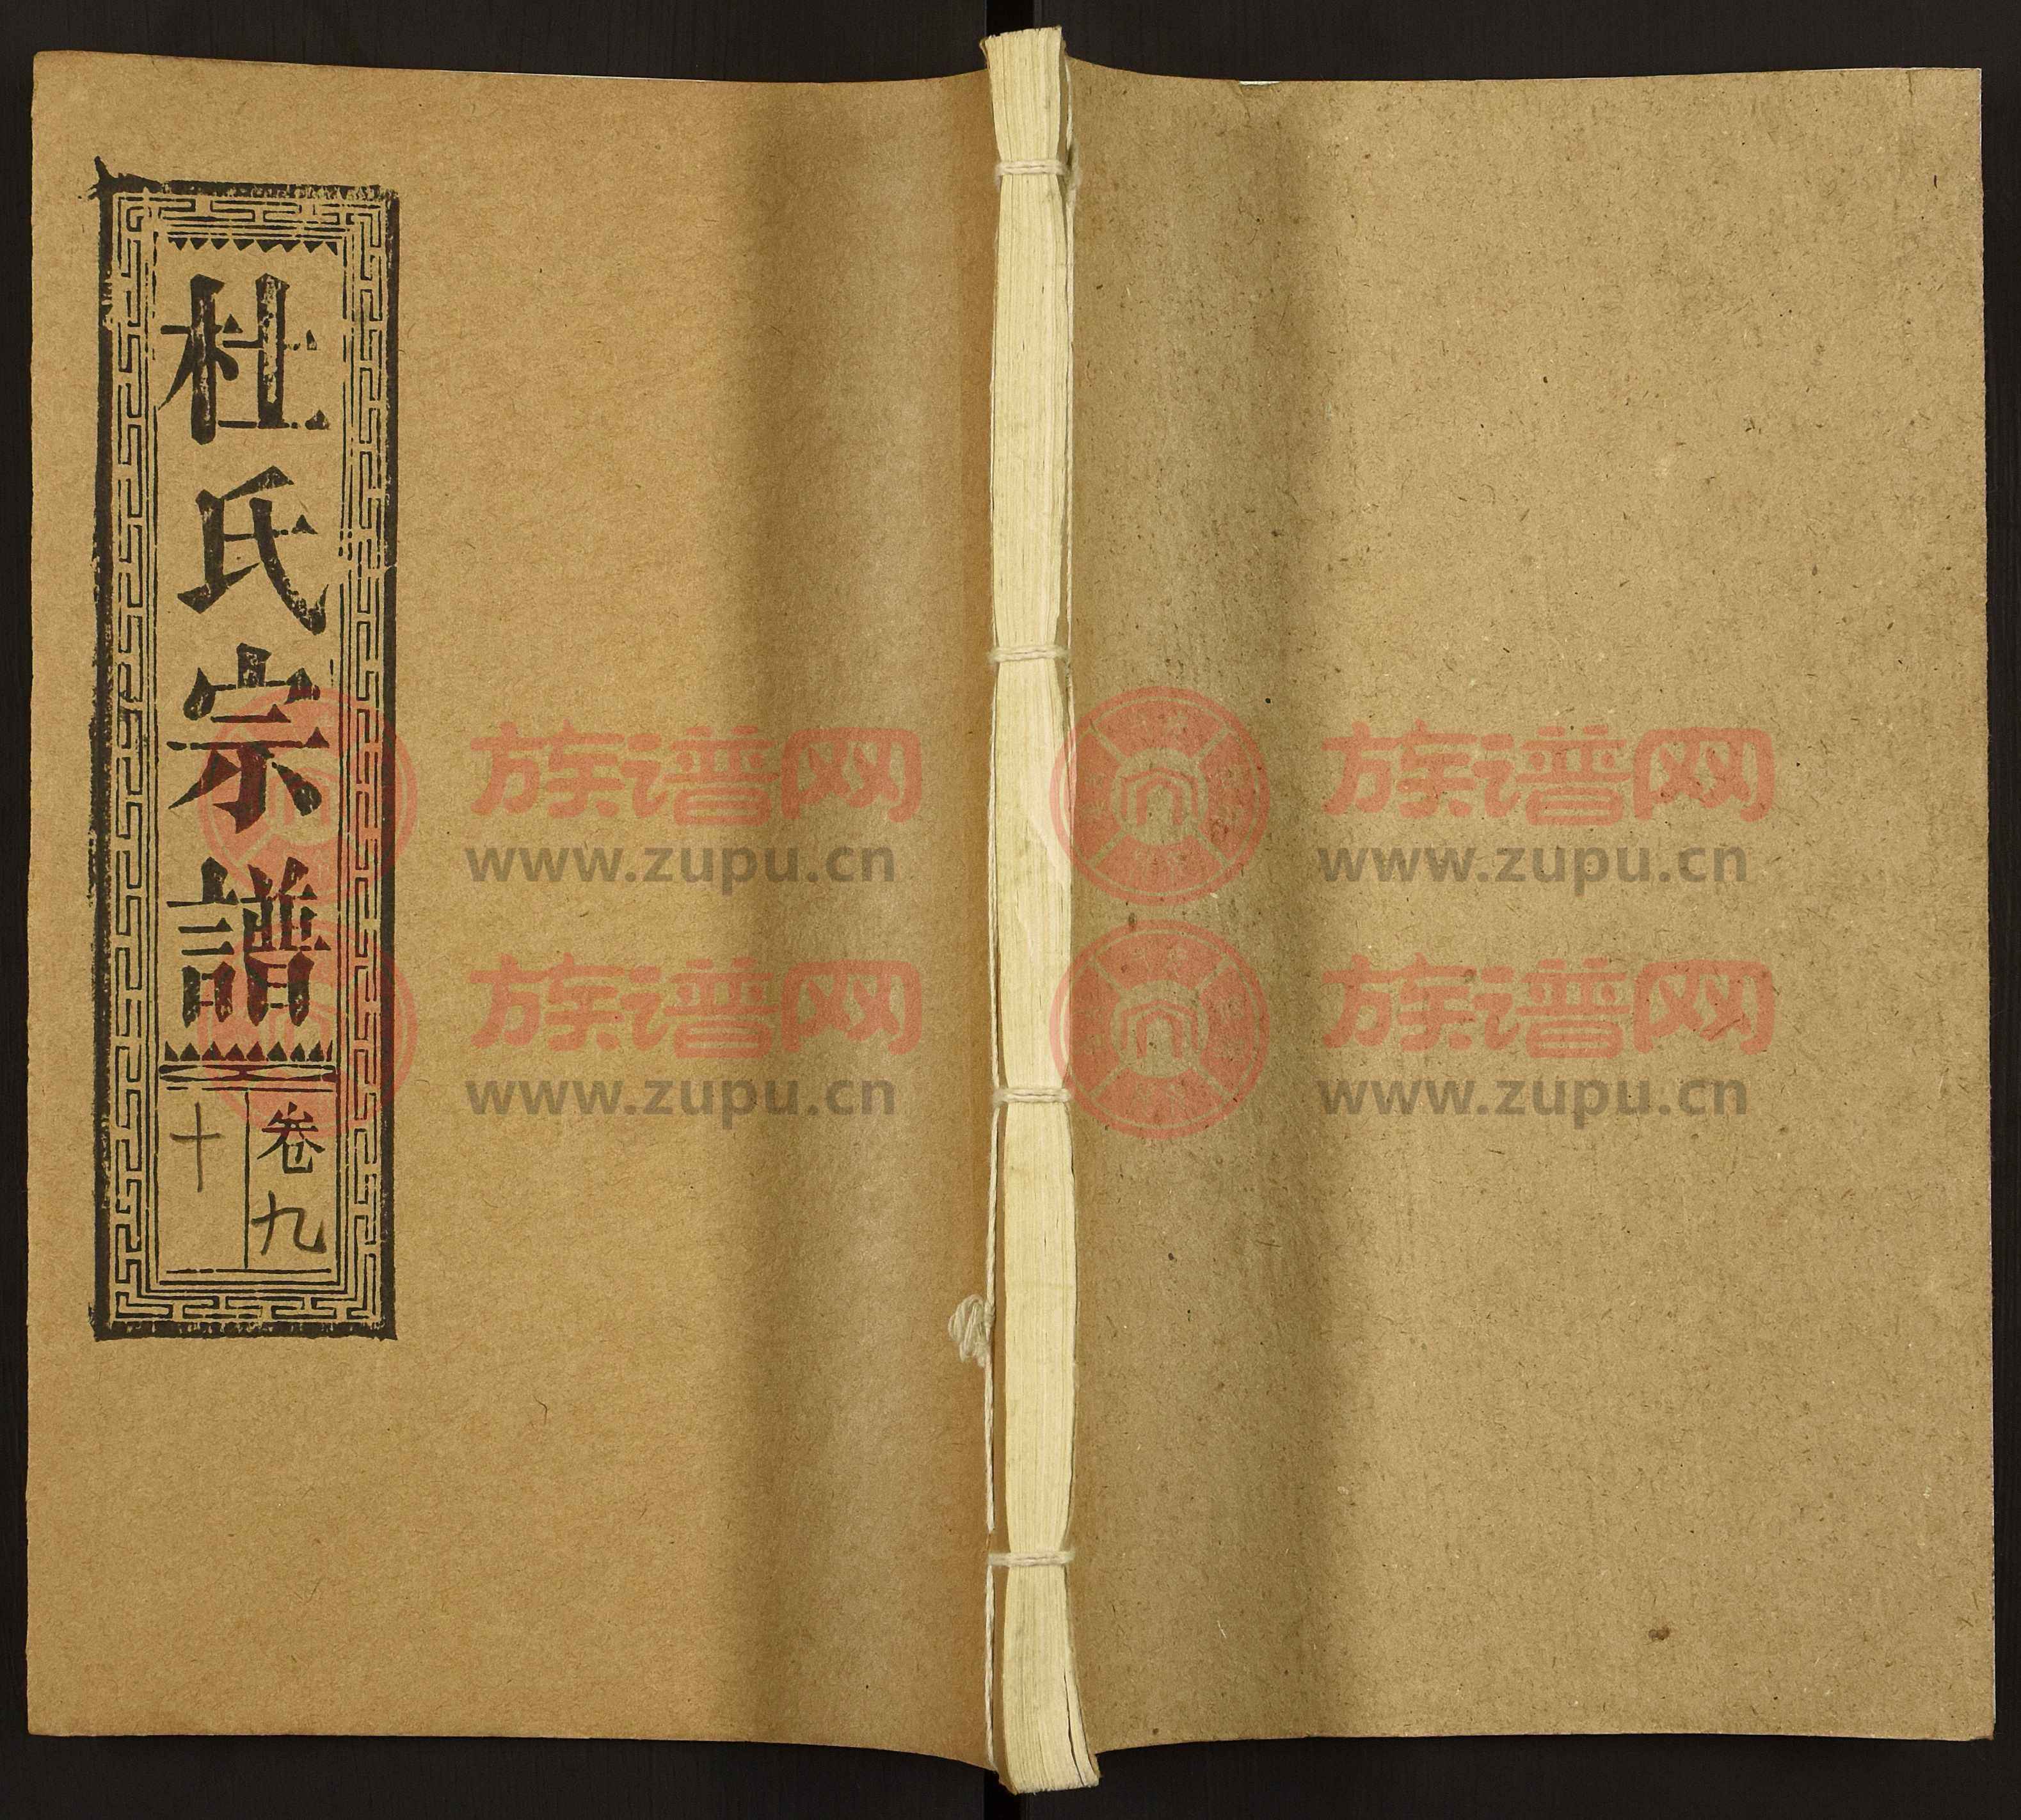 杜氏宗譜
卷九
十
族谱网
www.zupu.cn
族谱网
www.zupu.cn
族谱网
www.zupu.cn
族谱网
www.zupu.cn